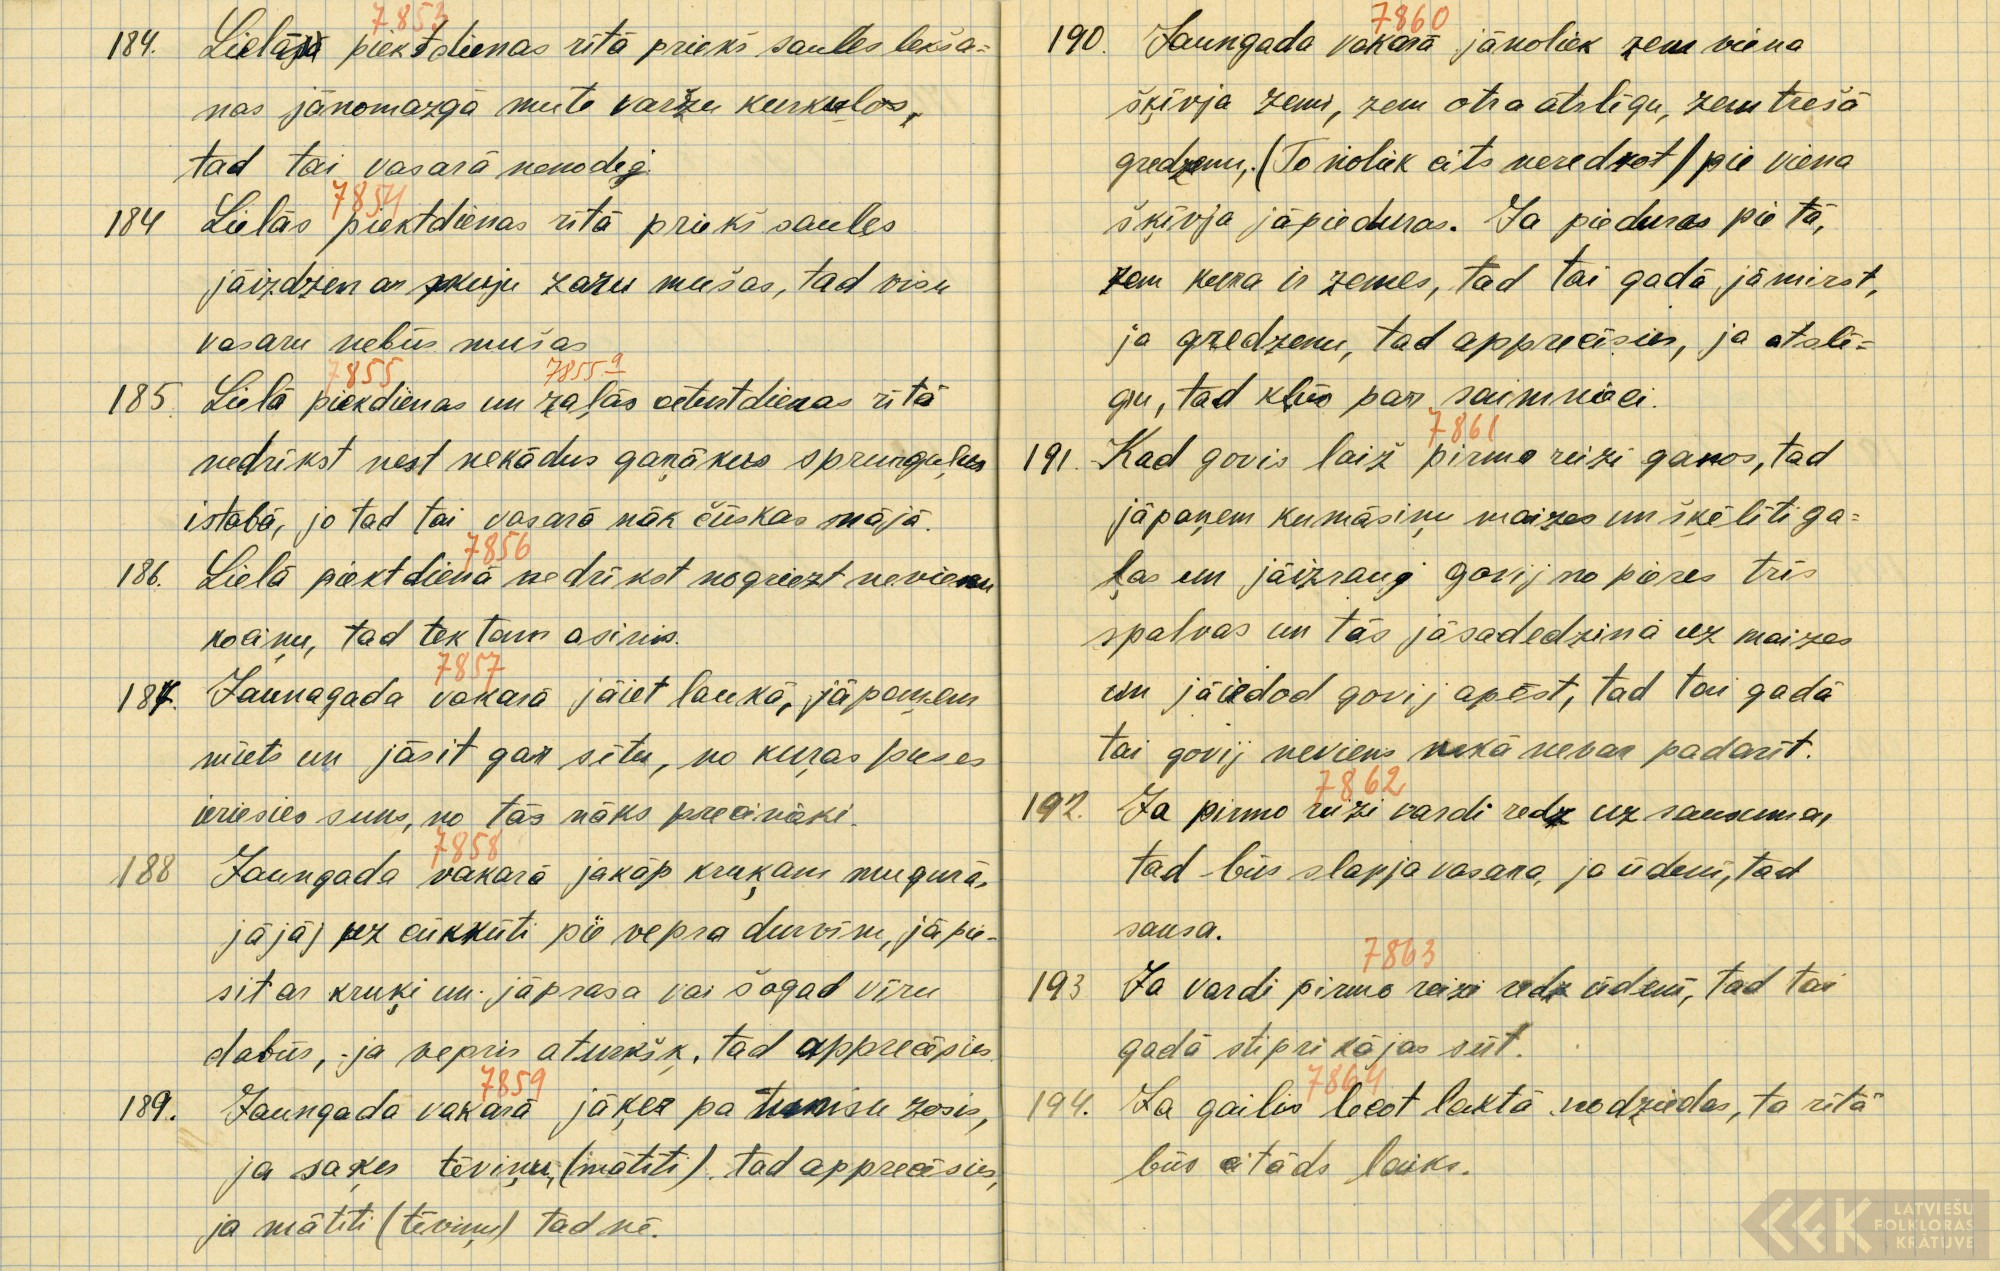 7853
184. Lielās piektdienas rītā priekš saules lekša=
nas jānomazgā mute varžu kurkulos,
tad tai vasarā nenodeg.
7854
184 Lielās piektdienas rītā priekš saules
jāizdzen ar skuju zaru mušas, tad visu
vasaru nebūs mušas
7855 7855a
185. Lielā piekdienas un zaļās cetustdienas rītā
nedrīkst nest nekādus gaŗākus sprunguļus
istabā, jo tad tai vasarā nāk čūskas mājā.
7856
186. Lielā piektdienā nedrīkst nogriezt nevienu
kociņu, tad tek tam asinis.
7857
187. Jaunagada vakarā jāiet laukā, jāpaņem
miets un jāsit gar sētu, no kuŗas puses
ieriesies suns, no tās nāks precinieki.
7858
188 Jaungada vakarā jakāp kruķam mugurā,
jājāj uz cūkkūti pie vepra durvīm, jāpie-
sit ar kruķi un jāprasa vai šogad vīru
dabūs, ja vepris aturkšķ, tad apprecēsies.
7859
189. Jaungada vakarā jāķer pa tumsu zosis,
ja saķer tēviņu, (mātīti) tad apprecēsies,
ja mātīti (tēviņu) tad nē.
7860
190. Jaungada vakarā jānoliek zem viena
šķīvja zemi, zem otra atslēgu, zem trešā
gredzenu, (To noliek cits neredzot) pie viena
šķīvja jāpieduras. Ja pieduras pie tā,
zem kura ir zemes, tad tai gadā jāmirst,
ja gredzenu, tad apprecēsies, ja atslē=
gu, tad kļūs par saimnieci.
7861
191. Kad govis laiž pirmo reizi ganos, tad
jāpaņem kumāsiņu maizes un šķēlīti ga=
ļas un jāizrauj govij no pieres trīs
spalvas un tās jāsadedzina uz maizes
un jāiedod govij apēst, tad tai gadā
tai govij neviens nekā nevar padarīt.
7862
192. Ja pirmo reizi vardi redz uz sausuma,
tad būs slapja vasara, ja ūdenī, tad
sausa.
7863
193 Ja vardi pirmo reizi redz ūdenī, tad tai
gadā stipri kājas sūt.
7864
194. Ja gailis lecot laktā nodziedas, ta rītā
būs citāds laiks.
LATVIEŠU
FOLKLORAS
KRĀTUVE